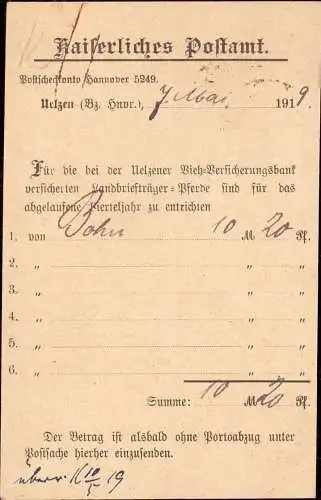 Kaiserliches Postamt.
Postscheckkonto Hannover 5249.
Uelzen (Bz. Hnvr.), 7. Mai 1919
Für die bei der Uelzener Vieh-Versicherungsbank
versicherten Landbriefträger-Pferde sind für das
abgelaufene Vierteljahr zu entrichten
1. von Bohn 10 M 20 Pf.
2. " " "
3. " " "
4. " " "
5. " " "
6. " " "
Summe: 10 M 20 Pf.
Der Betrag ist alsbald ohne Portoabzug unter
Postsache hierher einzusenden.
überw. 10/5 19